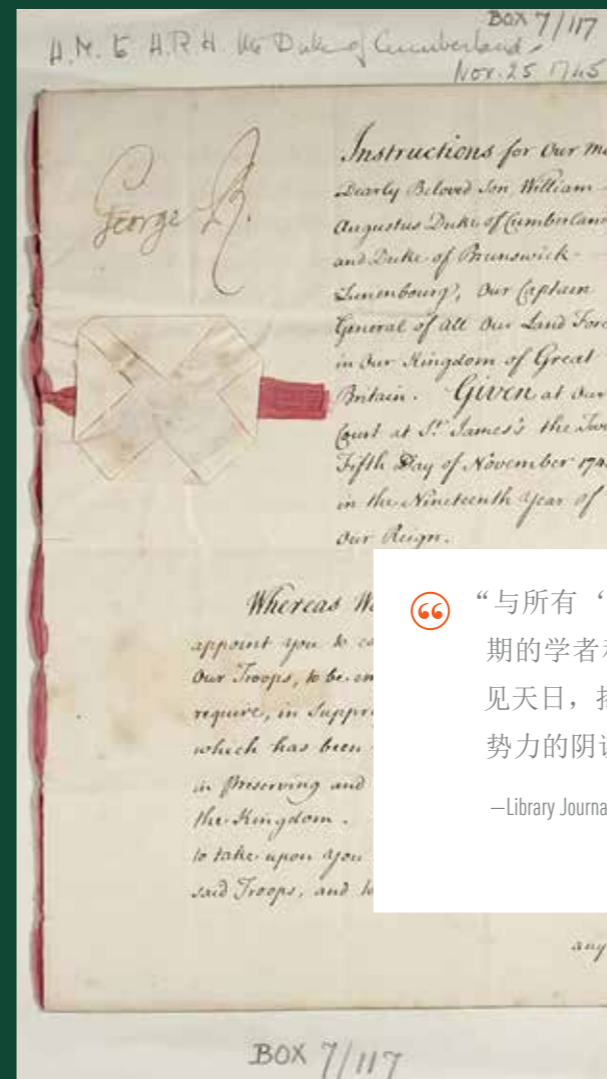 BOX 7/117
H.M. to H.R.H. the Duke of Cumberland
Nov. 25 1745
George R.
Instructions for Our
Dearly Beloved Son William
Augustus Duke of Cumberland
and Duke of Brunswick-
Lunenbourg, Our Captain
General of all Our Land
in Our Kingdom of Great
Britain. Given at Our
Court at St. James's the
Fifth Day of November
in the Nineteenth Year of
Our Reign.
Whereas
appoint you to
Our Troops, to be
require, in
which has been
in Preserving and
the Kingdom.
to take upon you
said Troops, and
“与所有‘
期的学者
见天日,
势力的阴
—Library
BOX 7/117